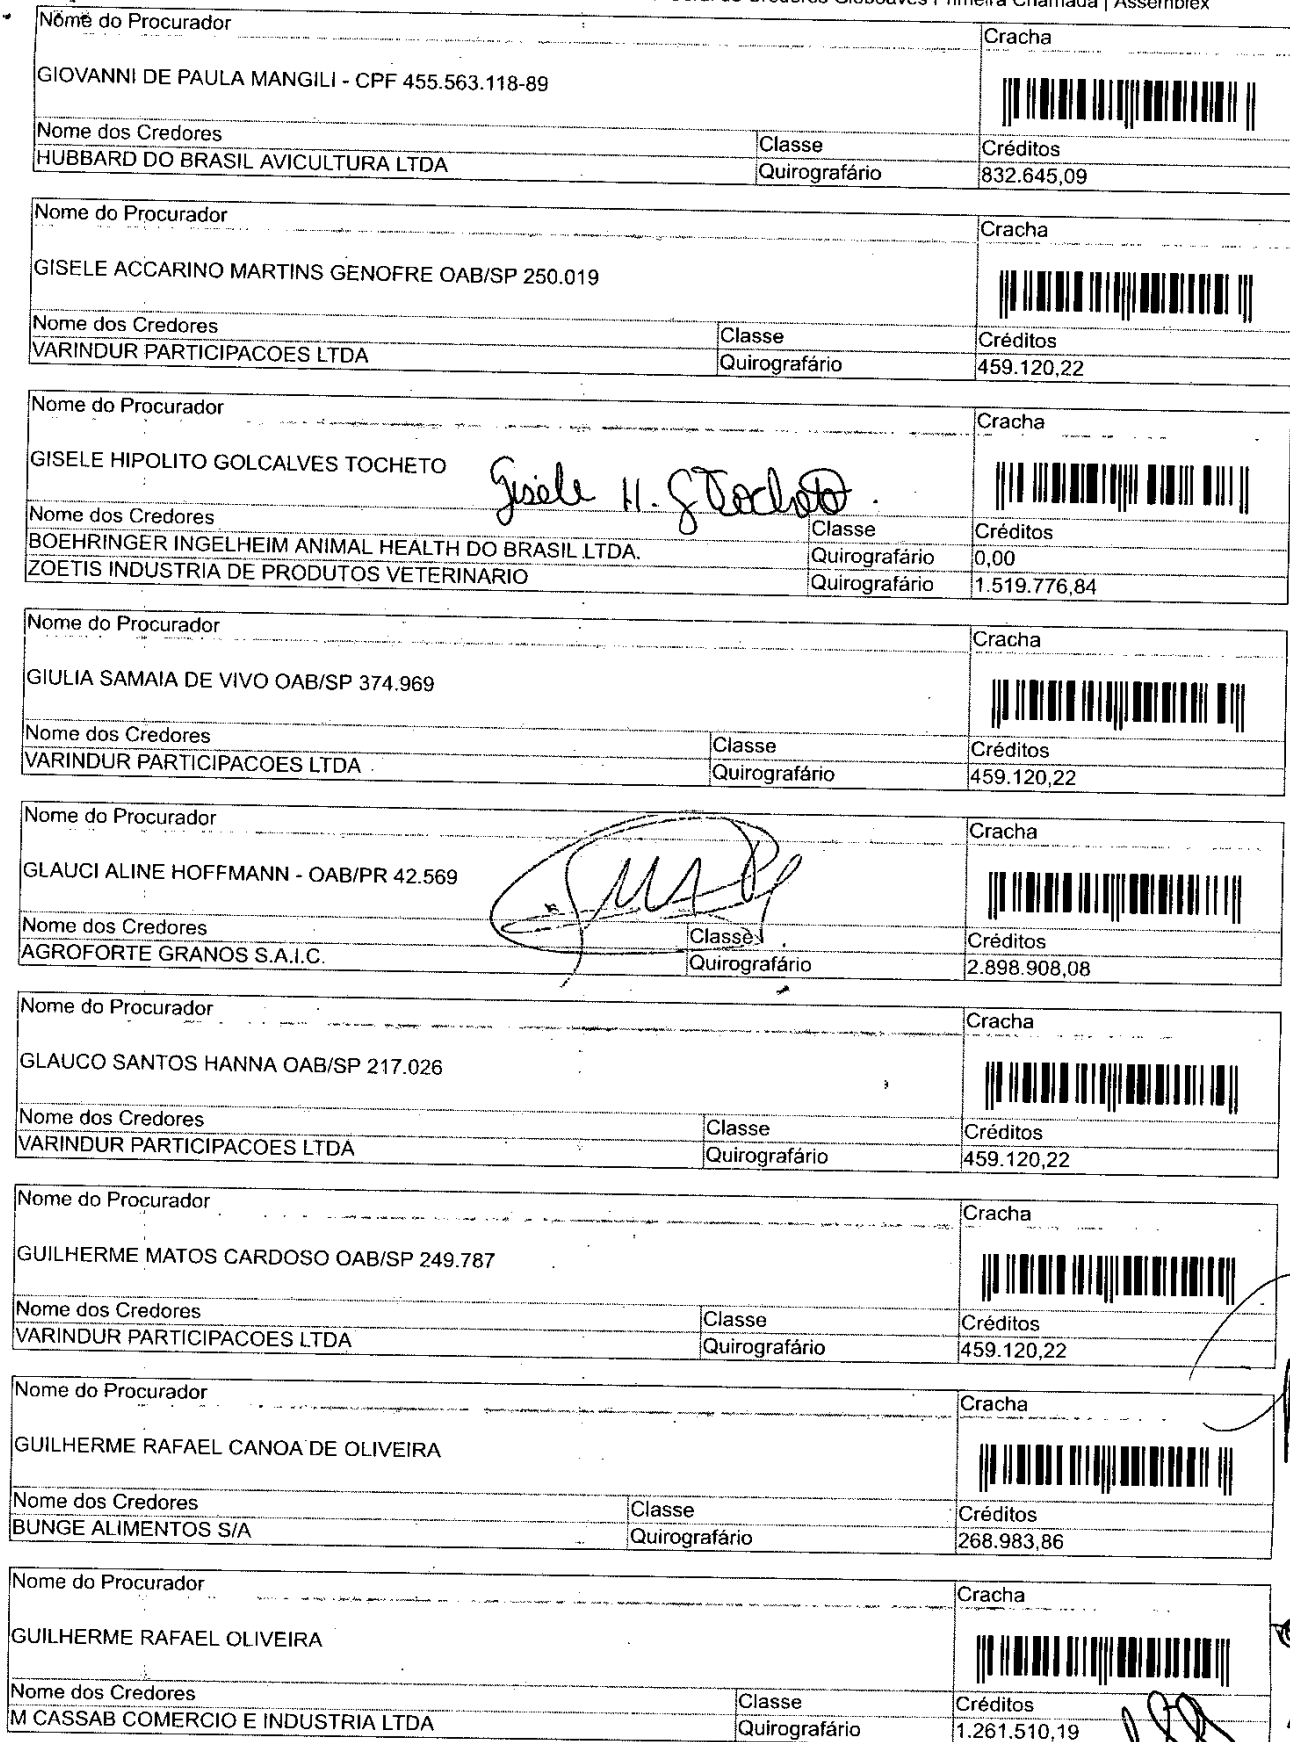 Primeira Chamada | Assemblex
Nome do Procurador
Cracha
GIOVANNI DE PAULA MANGILI - CPF 455.563.118-89
Nome dos Credores Classe Créditos
HUBBARD DO BRASIL AVICULTURA LTDA Quirografário 832.645,09
Nome do Procurador
Cracha
GISELE ACCARINO MARTINS GENOFRE OAB/SP 250.019
Nome dos Credores Classe Créditos
VARINDUR PARTICIPACOES LTDA Quirografário 459.120,22
Nome do Procurador
Cracha
GISELE HIPOLITO GOLCALVES TOCHETO Gisele H. G Tocheto.
Nome dos Credores Classe Créditos
BOEHRINGER INGELHEIM ANIMAL HEALTH DO BRASIL LTDA. Quirografário 0,00
ZOETIS INDUSTRIA DE PRODUTOS VETERINARIO Quirografário 1.519.776,84
Nome do Procurador
Cracha
GIULIA SAMAIA DE VIVO OAB/SP 374.969
Nome dos Credores Classe Créditos
VARINDUR PARTICIPACOES LTDA Quirografário 459.120,22
Nome do Procurador
Cracha
GLAUCI ALINE HOFFMANN - OAB/PR 42.569
Nome dos Credores Classe Créditos
AGROFORTE GRANOS S.A.I.C. Quirografário 2.898.908,08
Nome do Procurador
Cracha
GLAUCO SANTOS HANNA OAB/SP 217.026
Nome dos Credores Classe Créditos
VARINDUR PARTICIPACOES LTDA Quirografário 459.120,22
Nome do Procurador
Cracha
GUILHERME MATOS CARDOSO OAB/SP 249.787
Nome dos Credores Classe Créditos
VARINDUR PARTICIPACOES LTDA Quirografário 459.120,22
Nome do Procurador
Cracha
GUILHERME RAFAEL CANOA DE OLIVEIRA
Nome dos Credores Classe Créditos
BUNGE ALIMENTOS S/A Quirografário 268.983,86
Nome do Procurador
Cracha
GUILHERME RAFAEL OLIVEIRA
Nome dos Credores Classe Créditos
M CASSAB COMERCIO E INDUSTRIA LTDA Quirografário 1.261.510,19